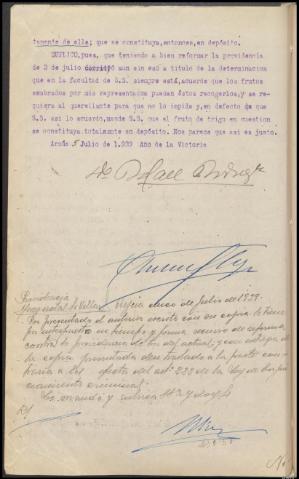 tamente de ella; que se constituya, entonces, en depósito.
SUPLICO, pues, que teniendo a bien reformar la providencia
de 2 de julio aun sin esó a titulo de la determinacion
que en la facultad de S.S. siempre está, acuerde que los frutos
sembrados por mis representados pueden éstos recogerlos, y se re-
quiera al querellante para que no lo impida y, en defecto de que
S.S. asi lo acuerde, mande S.S. que el fruto de trigo en cuestion
se constituya totalmente en depósito. Nos parece que asi es justo.
5 Julio de 1.939 Año de la Victoria
Providencia
de Julio de 1939.
Por presentado el anterior escrito con su copia
en tiempo y forma recurso de reforma
contra la providencia de actual; y con entrega de
la copia presentada dese traslado a la parte con-
traria a los efectos del artº 222 de la Ley de Enjui-
ciamiento criminal.
Lo mandó y rubrica S.Sª y doy fe